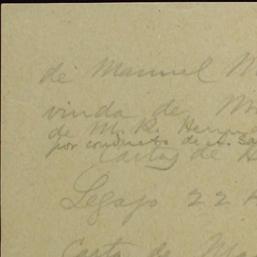 de Manuel M
viuda de M
de M. R. Herre
por conducto de
Cartas de H
Legajo 22
Carta de Ma